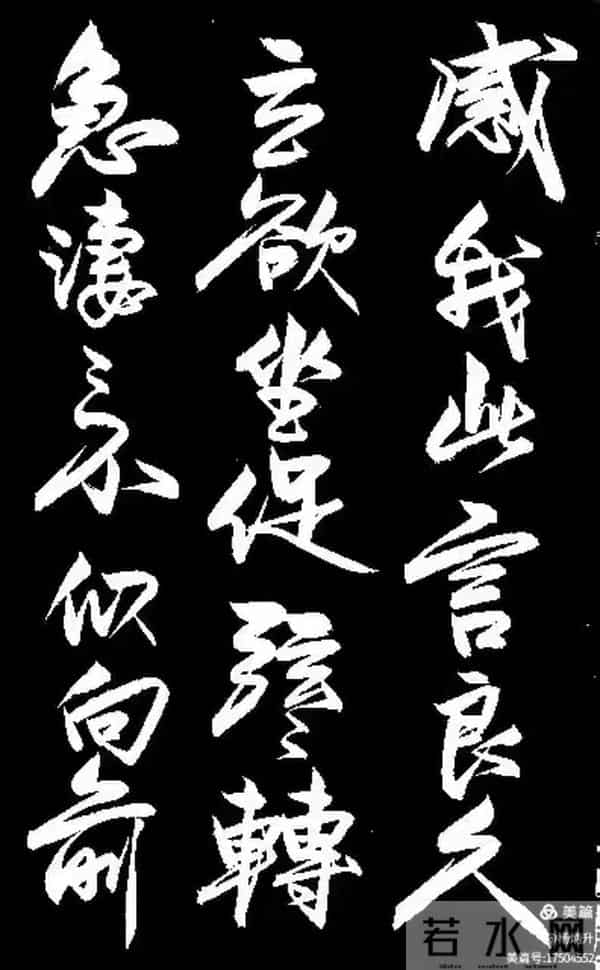 感我此言良久
立欲坐促弦〻轉
急淒〻不似向前
美篇
美篇号:17504552
若水网